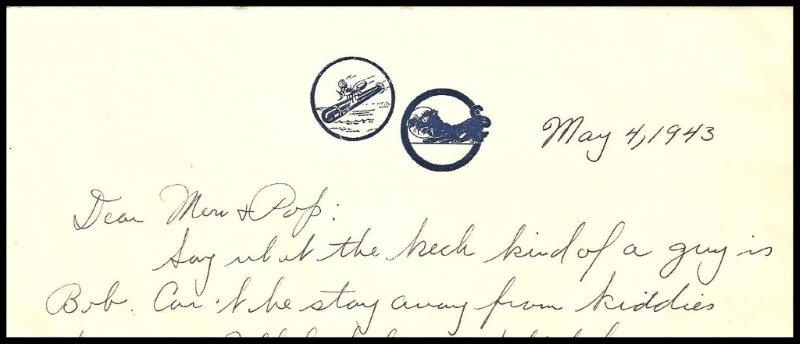 May 4, 1943
Dear Mom & Pop:
Say what the heck kind of a guy is
Bob. Can't he stay away from kiddies